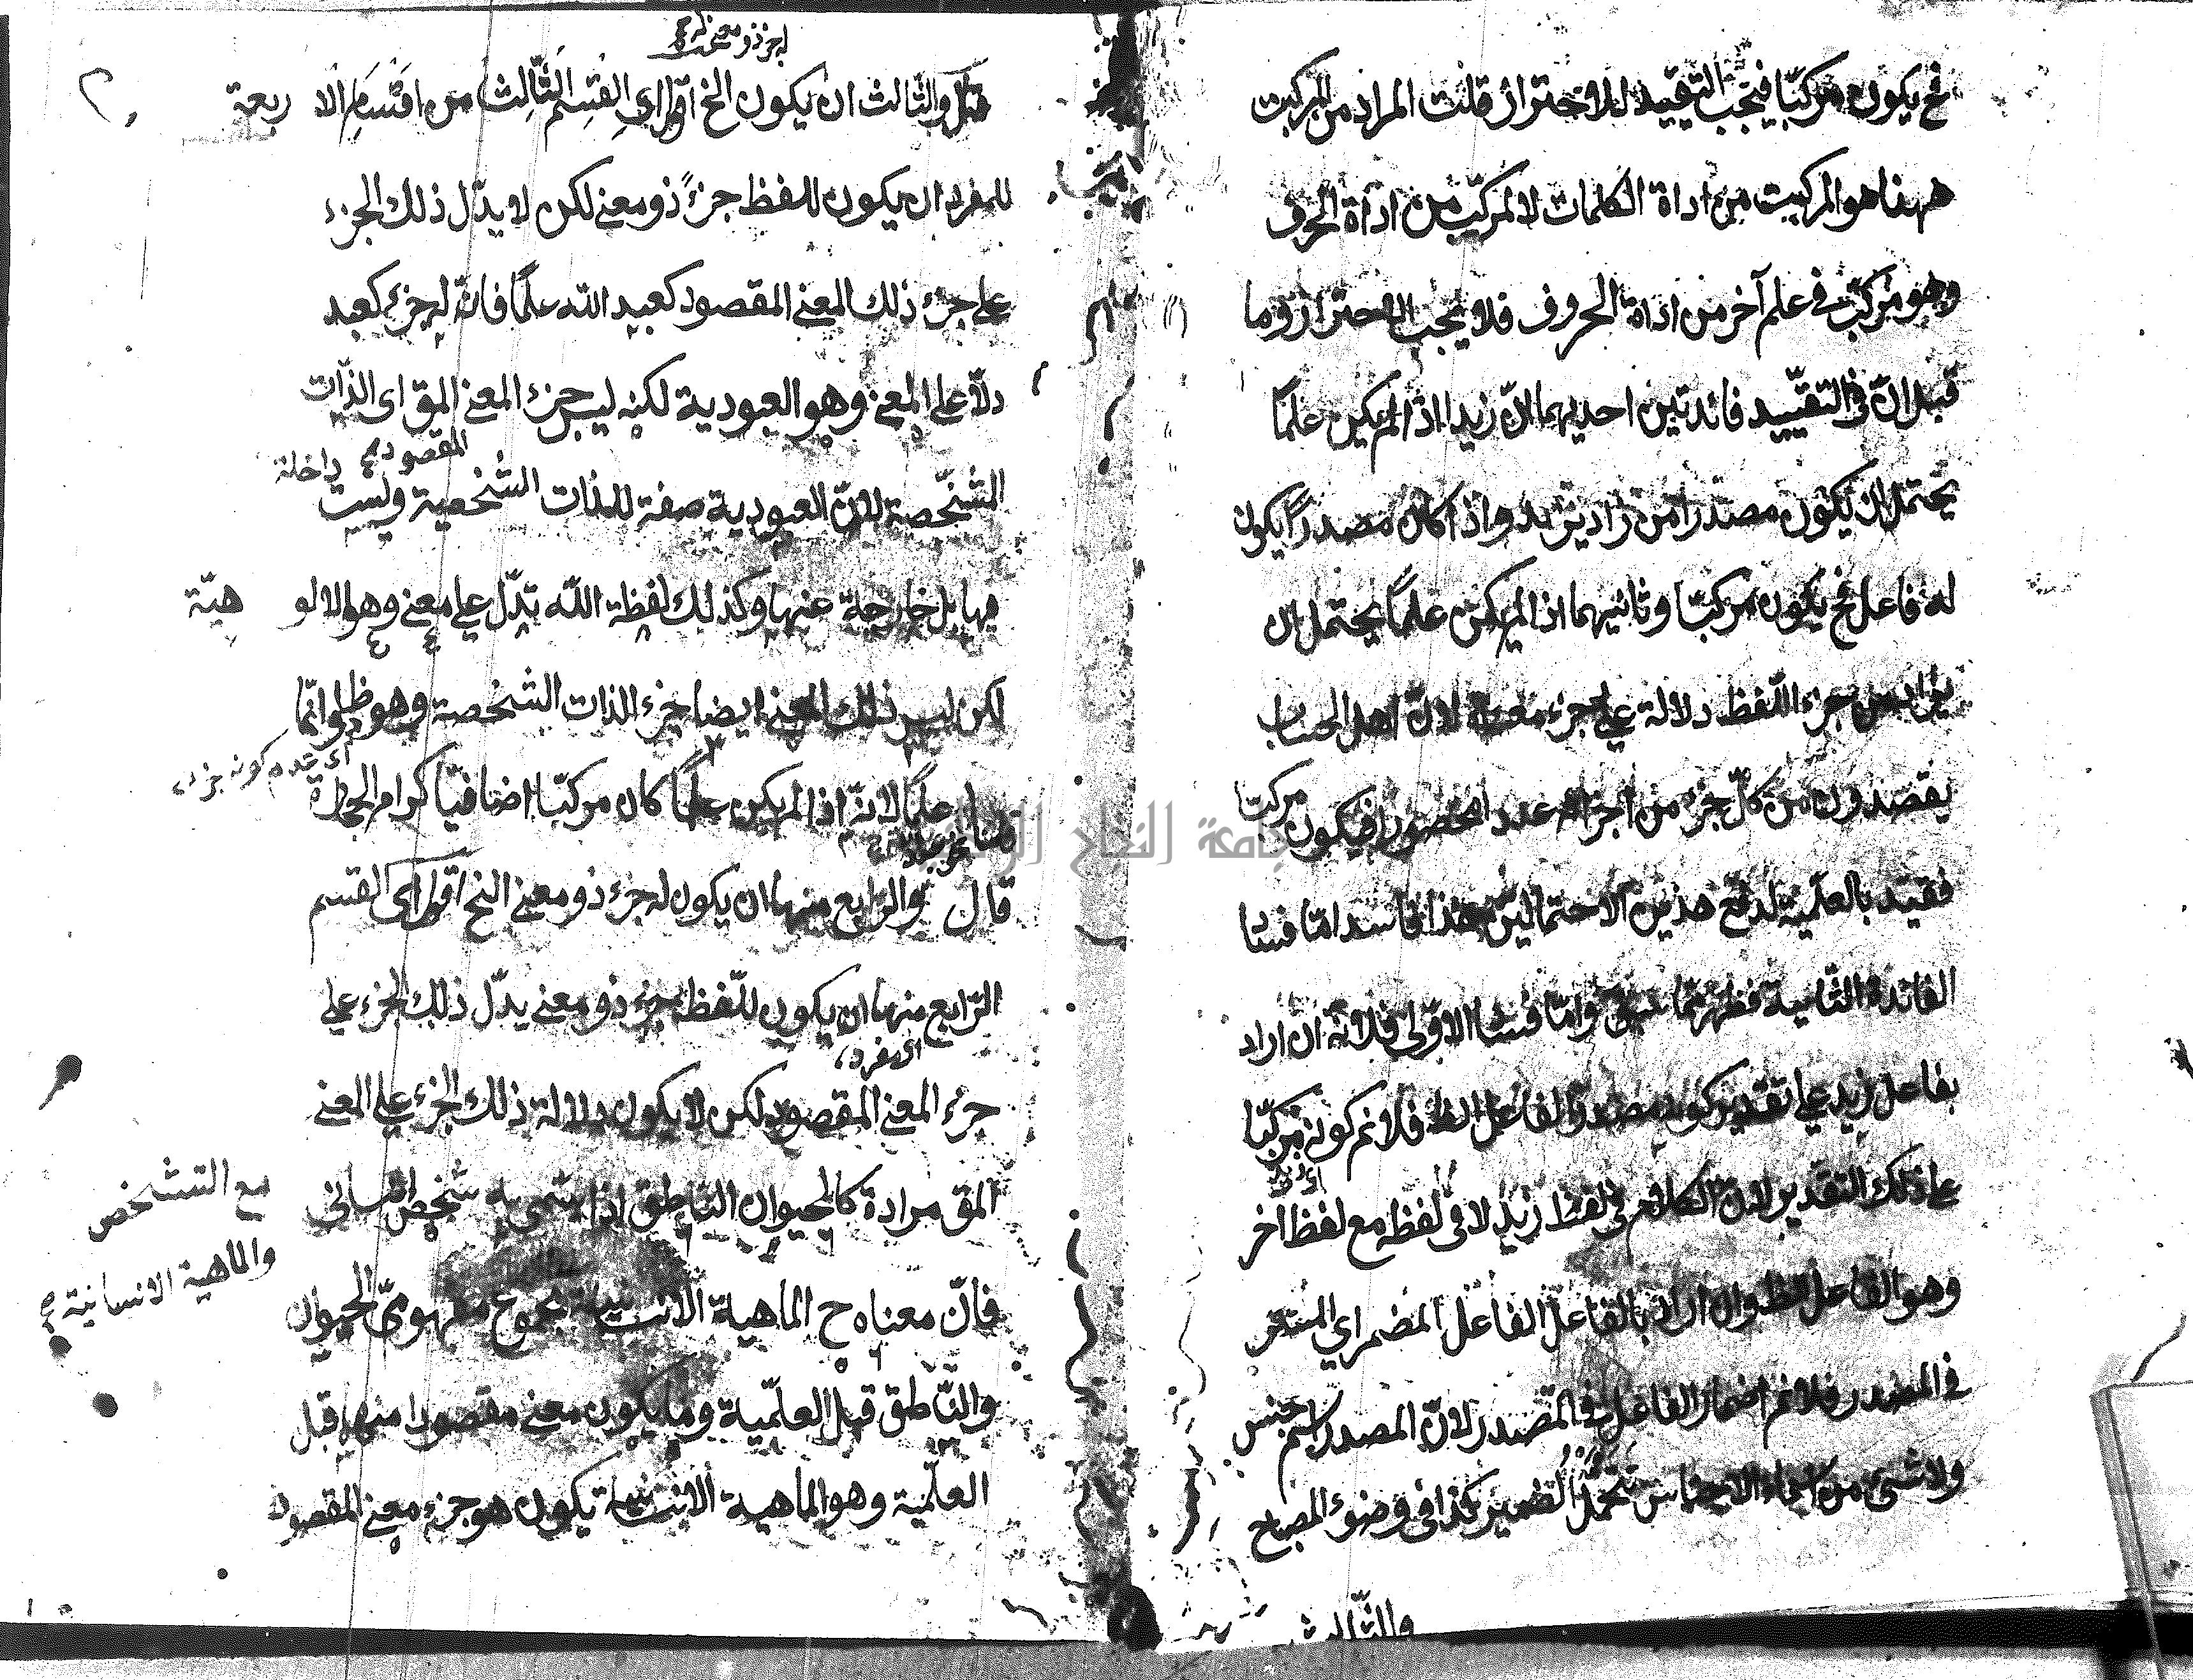 فح يكون مركبا فيجب التقييد للاحتراز قلت المراد من المركب
ههنا هو المركب من اداة الكلمات لا المركب من اداة الحرف
وهو مركب في علم آخر من اداة الحروف فلا يجب الاحتراز وما
قيل ان في التقييد فائدتين احديهما ان زيدا اذا لم يكن علما
يحتمل ان يكون مصدرا من زاد يزيد واذا كان مصدرا يكون
له فاعل فح يكون مركبا وثانيهما اذا لم يكن علما يحتمل ان
جزء اللفظ دلالة على جزء معناه لان اهل الحساب
يقصدون من كل جزء من اجزائه عددا محصورا فيكون مركبا
فقيد بالعلمية لدفع هذين الاحتمالين فهذا فاسد اما فساد
الفائدة الثانية فظهر مما وامّا فساد الاولى فلانه ان اراد
بفاعل زيد على تقدير كونه مصدرا الفاعل الظ فلا نم كونه مركبا
على ذلك التقدير لان الكلام في لفظ زيد لا في لفظه مع لفظ آخر
وهو الفاعل الظ وان اراد بالفاعل الفاعل المضمر اي المستتر
في المصدر فلا نم اضمار الفاعل في المصدر لان المصدر اسم جنس
ولا شيء من اسماء الاجناس يتحمل الضمير كذا في وضوء المصباح
والثالث
له جزء ذو معنى
قال والثالث ان يكون الخ اقول اي القسم الثالث من اقسام الاربعة
للمفرد ان يكون للفظ جزءً ذو معنى لكن لا يدل ذلك الجزء
على جزء ذلك المعنى المقصود كعبد الله علما فانه له جزء كعبد
دلّا على المعنى وهو العبودية لكنه ليس جزء المعنى المق اى الذات
المقصود
الشخصة لان العبودية صفة للذات الشخصية وليست داخلة
فيها بل خارجة عنها وكذلك لفظة الله تدل على معنى وهو الالوهية
لكن ليس ذلك المعنى ايضا جزء الذات الشخصة وهو ظ وانما
اى عدم كونه جزء
قلنا علما لانه اذا لم يكن علما كان مركبا اضافيا كرام الحجارة
قال والرابع منها ان يكون له جزء ذو معنى الخ اقول اى القسم
الرابع منها ان يكون للفظ جزء ذو معنى يدل ذلك الجزء على
اى مفرد
جزء المعنى المقصود لكن لا يكون دلالة ذلك الجزء على المعنى
المق مرادة كالحيوان الناطق اذا سمى به شخص انسانى
مع التشخص
والماهية الانسانية
فانّ معناه ح الماهية الانسانية مجموع مفهومي الحيوان
والناطق قبل العلمية وما يكون معنى مقصودا منها قبل
العلمية وهو الماهية الانسانية يكون هو جزء معنى المقصود
جامعة النجاح الوطنية